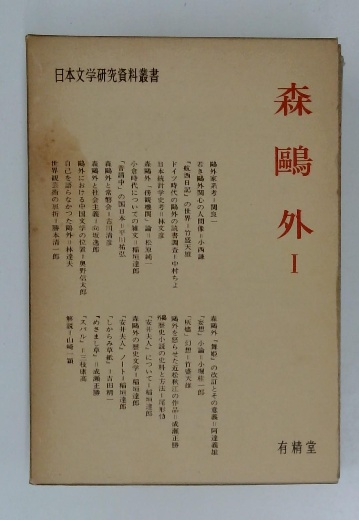 日本文学研究資料叢書
森鷗外 I
鷗外家系考=関良一
若き鷗外関心の人間像=小西謙
「航西日記」の世界=竹盛天雄
ドイツ時代の鷗外の読書調査=中村ちよ
日本統計学史考=林文彦
森鷗外「傍観機関」論=松原純一
小倉時代についての雑文=稲垣達郎
「普請中」の国日本=平川祐弘
森鷗外と常磐会=古川清彦
森鷗外と社会主義=向坂逸郎
鷗外における中国文学の位置=奥野信太郎
自己を語らなかった鷗外=林達夫
世界観芸術の屈折=勝本清一郎
森鷗外「舞姫」の改訂とその意義=岡達義雄
「妄想」小論=小堀桂一郎
「灰燼」幻想=竹盛天雄
鷗外を怒らせた近松秋江の作品=成瀬正勝
歴史小説の史料と方法=尾形仂
「安井夫人」について=稲垣達郎
森鷗外の歴史文学=稲垣達郎
「安井夫人」ノート=稲垣達郎
「しからみ草紙」=吉田精一
「めさまし草」=成瀬正勝
「スバル」=三枝康高
解説=山崎一穎
有精堂